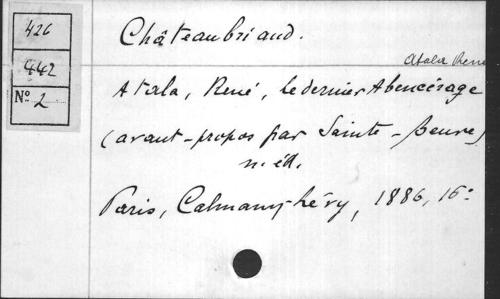 426
442
Nº 2
Châteaubriand.
Atala René
Atala, René, le dernier Abencérage
(avant-propos par Sainte-Beuve)
n. éd.
Paris, Calmann-Lévy, 1886, 16º